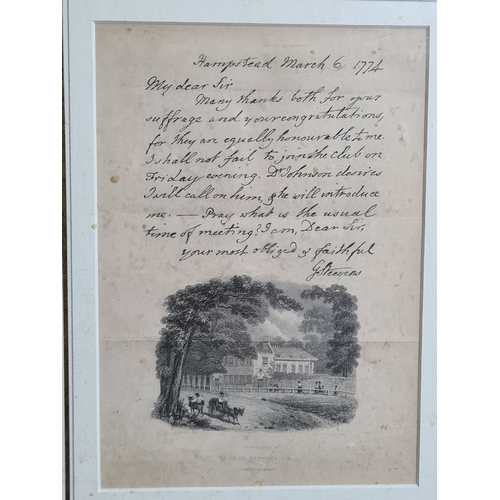 Hampstead March 6 1774
My dear Sir
Many thanks both for your
suffrage and your congratulations,
for they are equally honourable to me.
I shall not fail to join the Club on
Friday evening. Dr Johnson desires
I will call on him, & he will introduce
me. — Pray what is the usual
time of meeting? I am, Dear Sir,
your most obliged & faithful
GSteevens